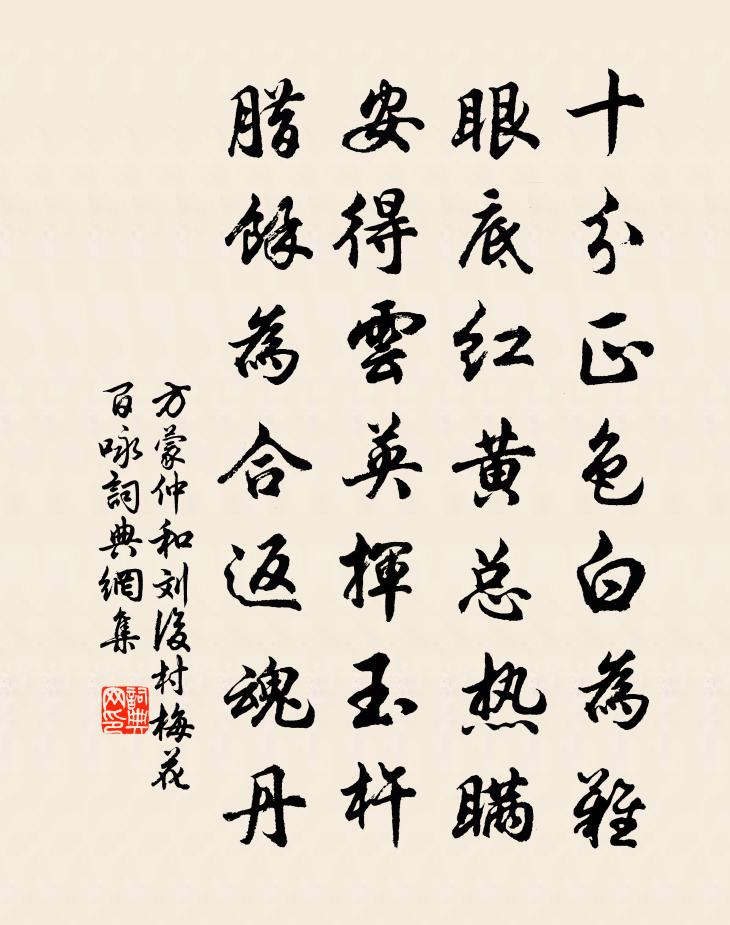 十分正色白為難
眼底红黄总热瞒
安得雲英揮玉杵
腊餘為合返魂丹
方蒙仲和刘後村梅花
百咏詞典網集
詞典網印